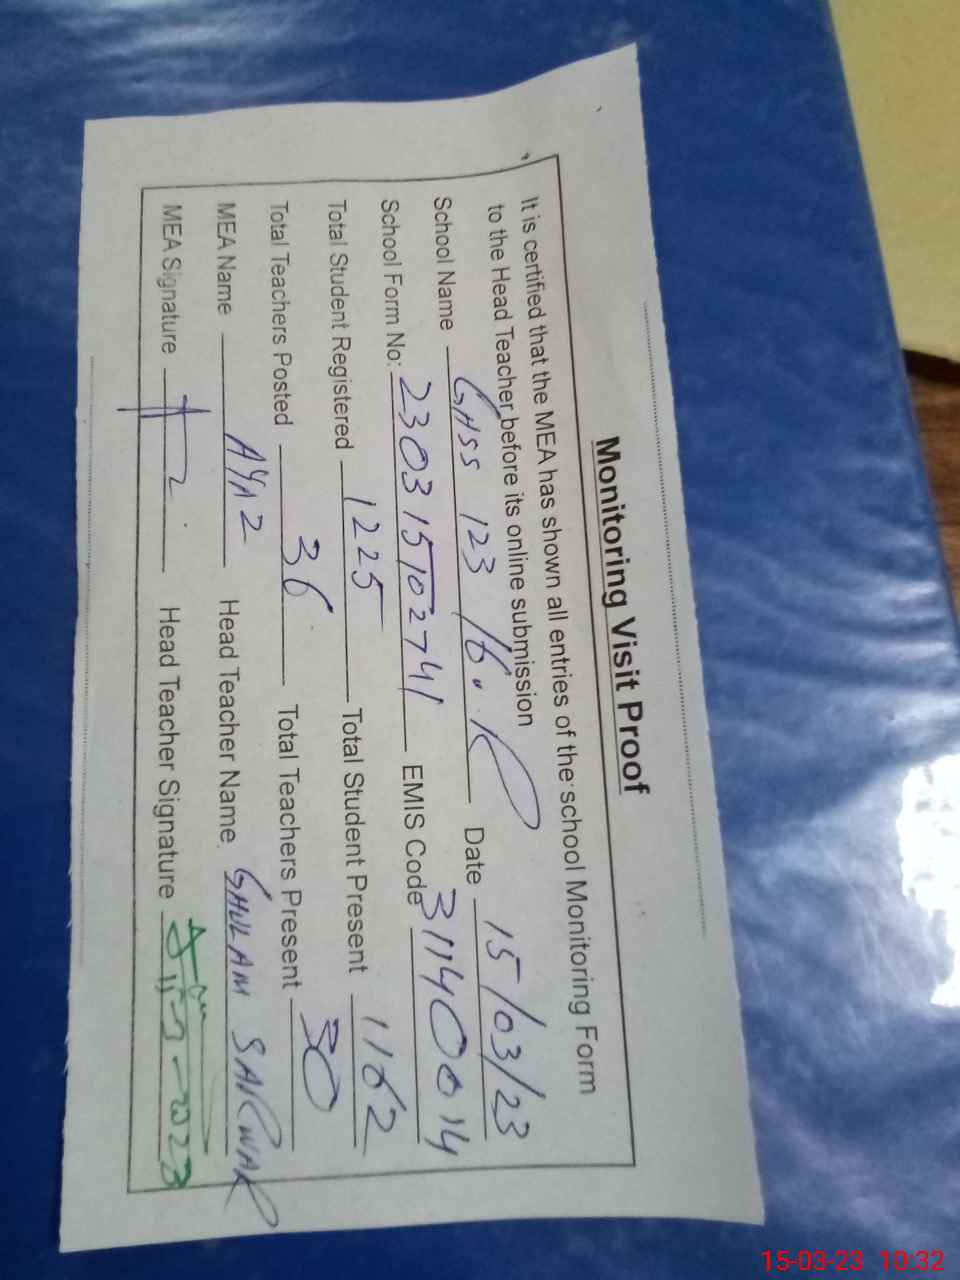 Monitoring Visit Proof
It is certified that the MEA has shown all entries of the school Monitoring Form
to the Head Teacher before its online submission
School Name GHSS 123 16.R Date 15/03/23
School Form No: 230315102741 EMIS Code 31140014
Total Student Registered 1225 Total Student Present 1162
Total Teachers Posted 36 Total Teachers Present 30
MEA Name AYAZ Head Teacher Name GHULAM SARWAR
MEA Signature Head Teacher Signature
15-03-23 10:32